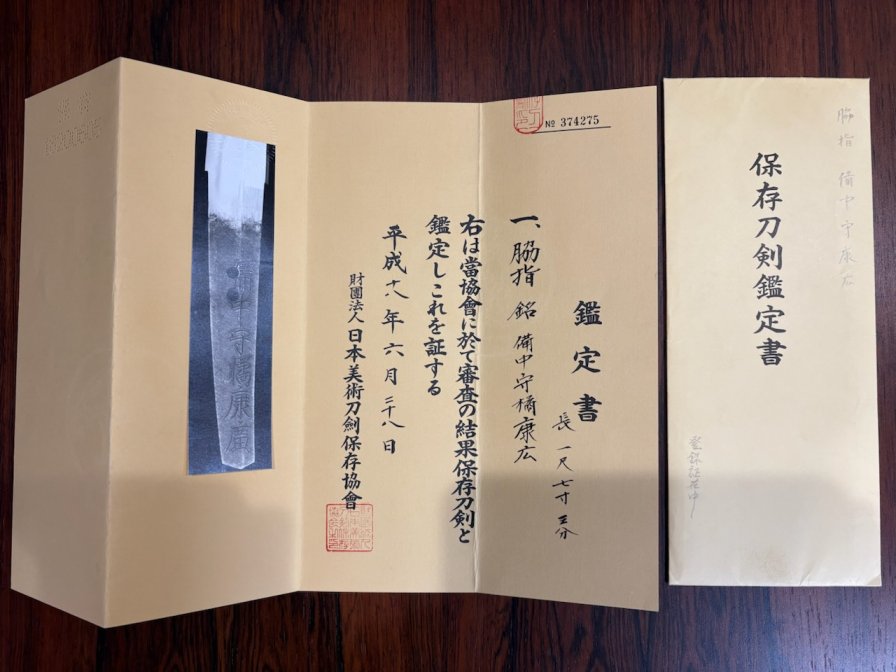 No 374275
鑑定書
一、脇指 銘 備中守橘康広
長 一尺七寸三分
右は當協會に於て審査の結果保存刀剣と
鑑定しこれを証する
平成十八年六月二十八日
財團法人日本美術刀劍保存協會
備中守橘康廣
保存刀剣鑑定書
脇指 備中守康広